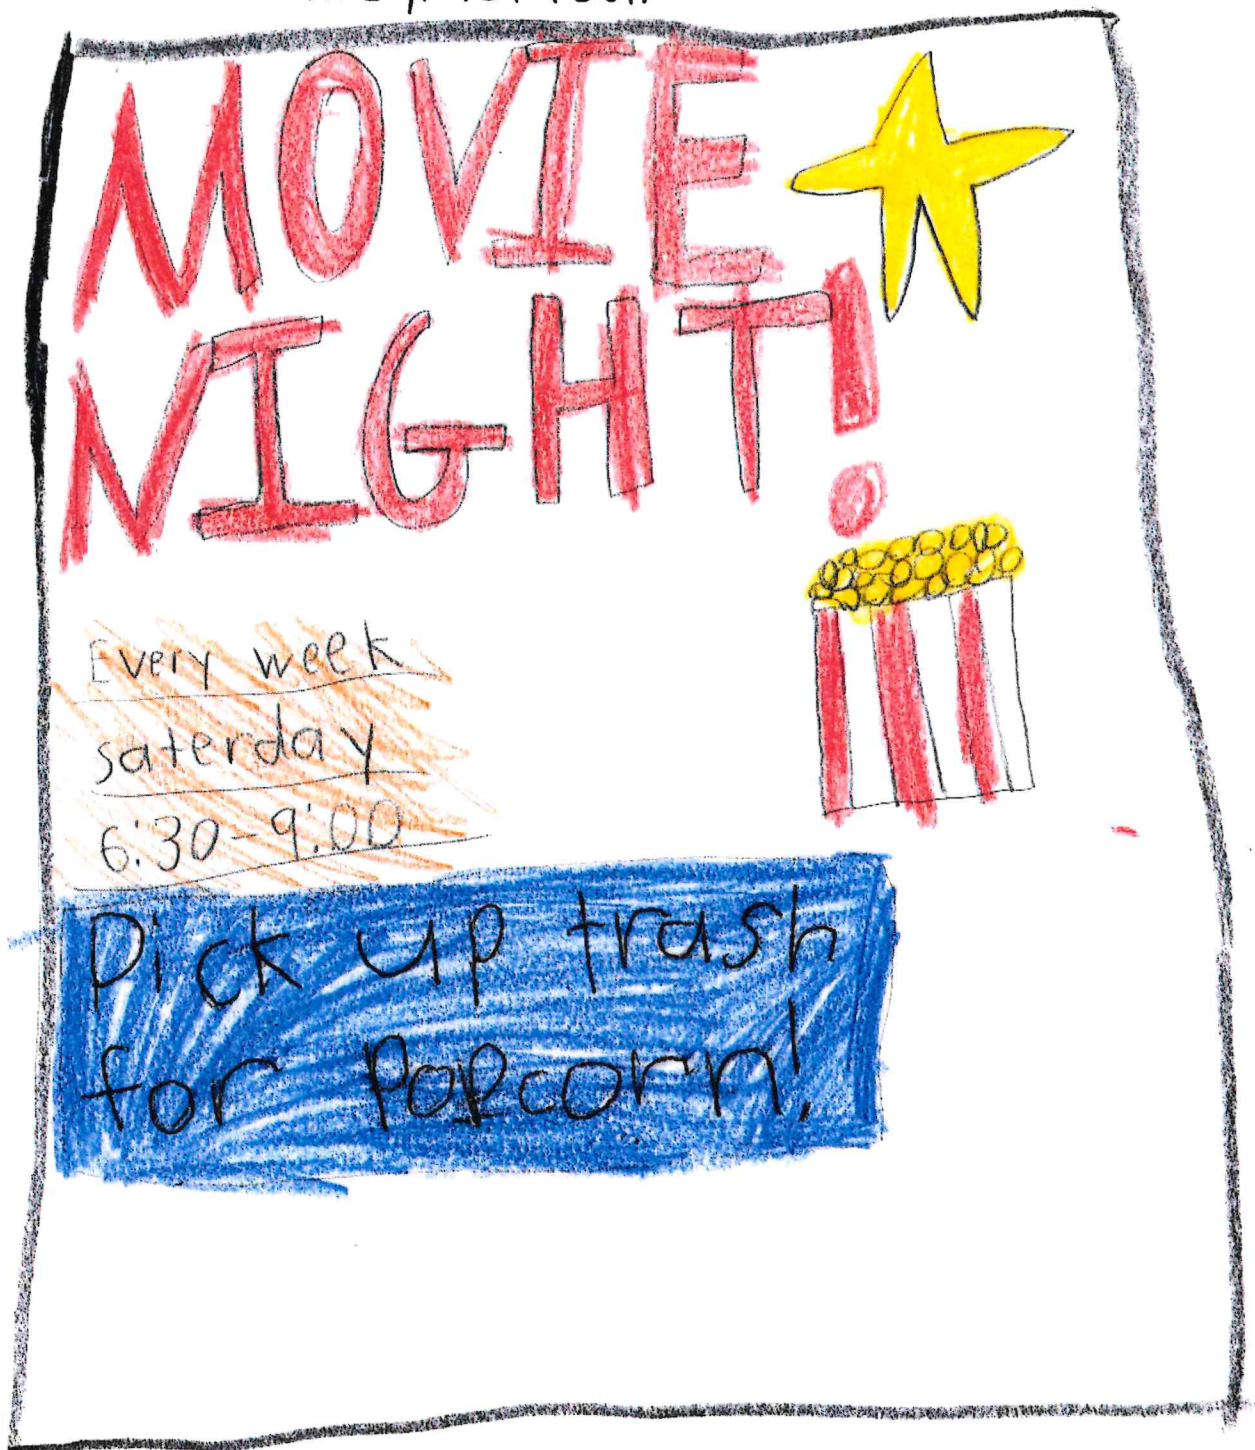 MOVIE
NIGHT!
Every week
saterday
6:30-9:00
Pick up trash
for Popcorn!